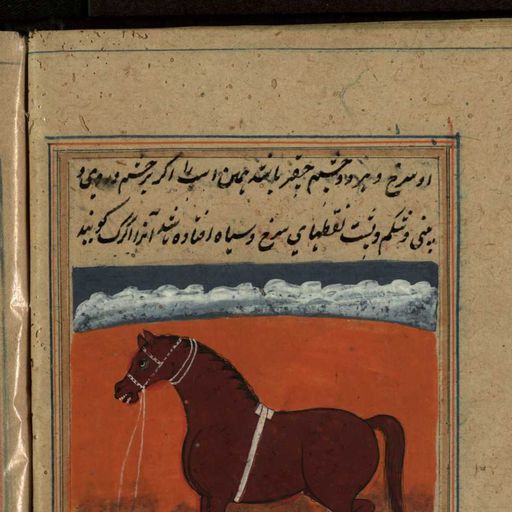 او سرخ و هر دو چشم چقر باشد همین است اگر بر چشم و روی و
بینی و شکم و پشت نقطهای سرخ و سیاه افتاده باشد آنرا گرگ گویند